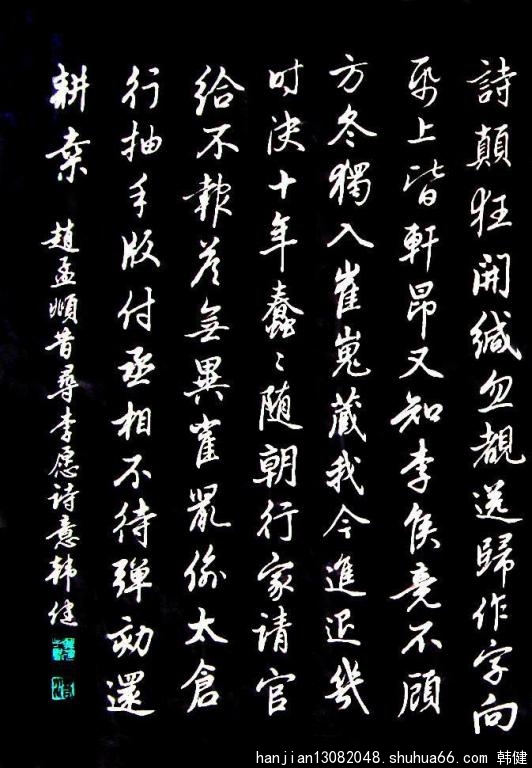 詩顛狂開緘忽覩送歸作字向
紙上皆軒昂又知李侯竟不顧
方冬獨入崔嵬藏我今進退幾
时决十年蠢〻随朝行家请官
给不報答無異雀鼠偷太倉
行抽手版付丞相不待弹劾還
耕桒 趙孟頫昔尋李愿诗意韩健
hanjian13082048.shuhua66.com 韩健